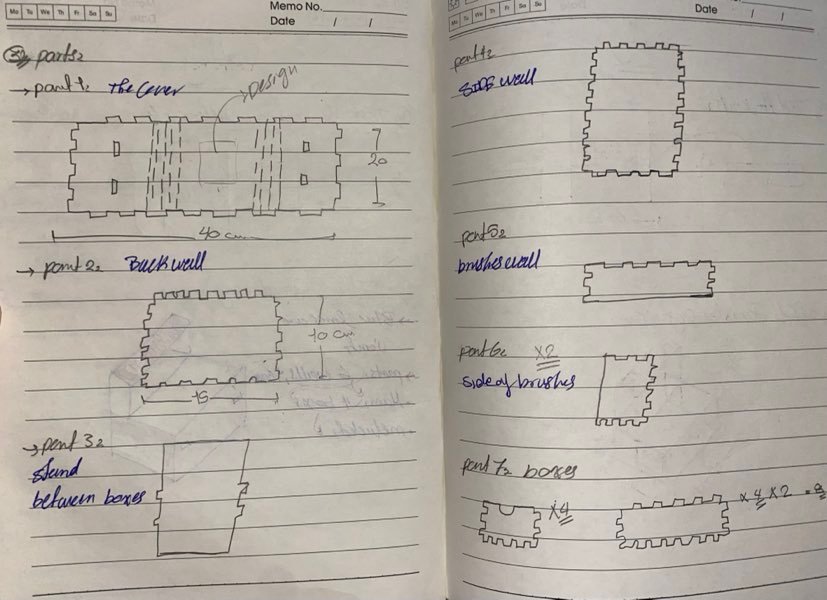 Mo Tu We Th Fr Sa Su
Memo No.
Date / /
parts:
→ part 1: The Cover
Design
20
40 cm
→ part 2: Back wall
10 cm
15
→ part 3:
stand
between boxes
Mo Tu We Th Fr Sa Su
Date / /
part 4:
side wall
part 5:
brushes wall
part 6: x2
side of brushes
part 7: boxes
x4
x 4 x 2 = 8